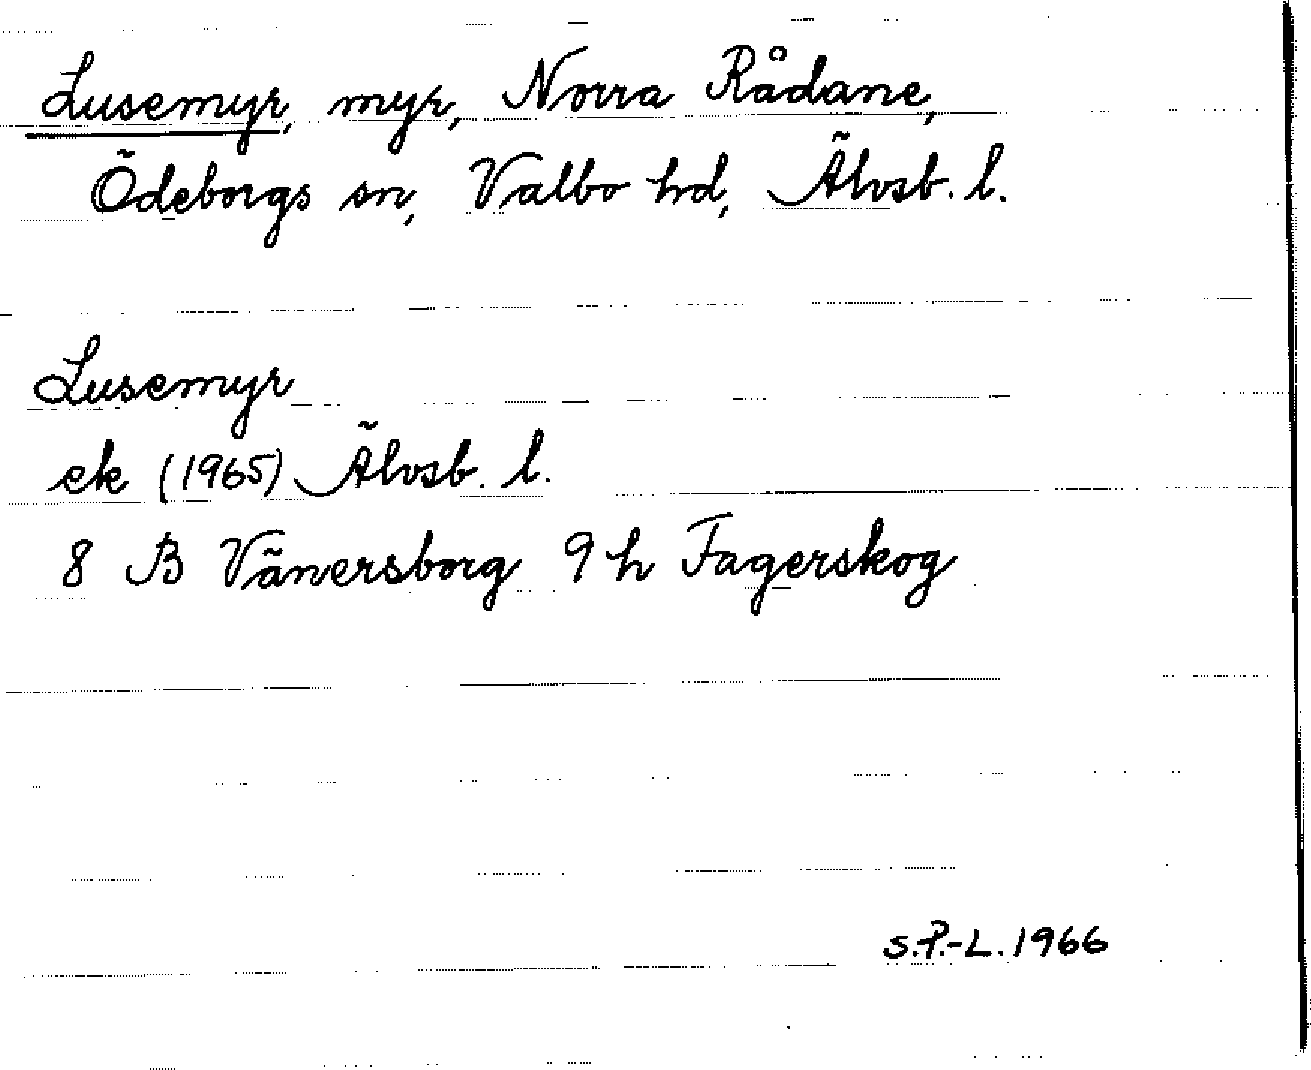 Lusemyr, myr, Norra Rådane,
Ödeborgs sn, Valbo hd, Älvsb. l.
Lusemyr
ek (1965) Älvsb. l.
8 B Vänersborg 9 h Fagerskog
S.P.-L. 1966